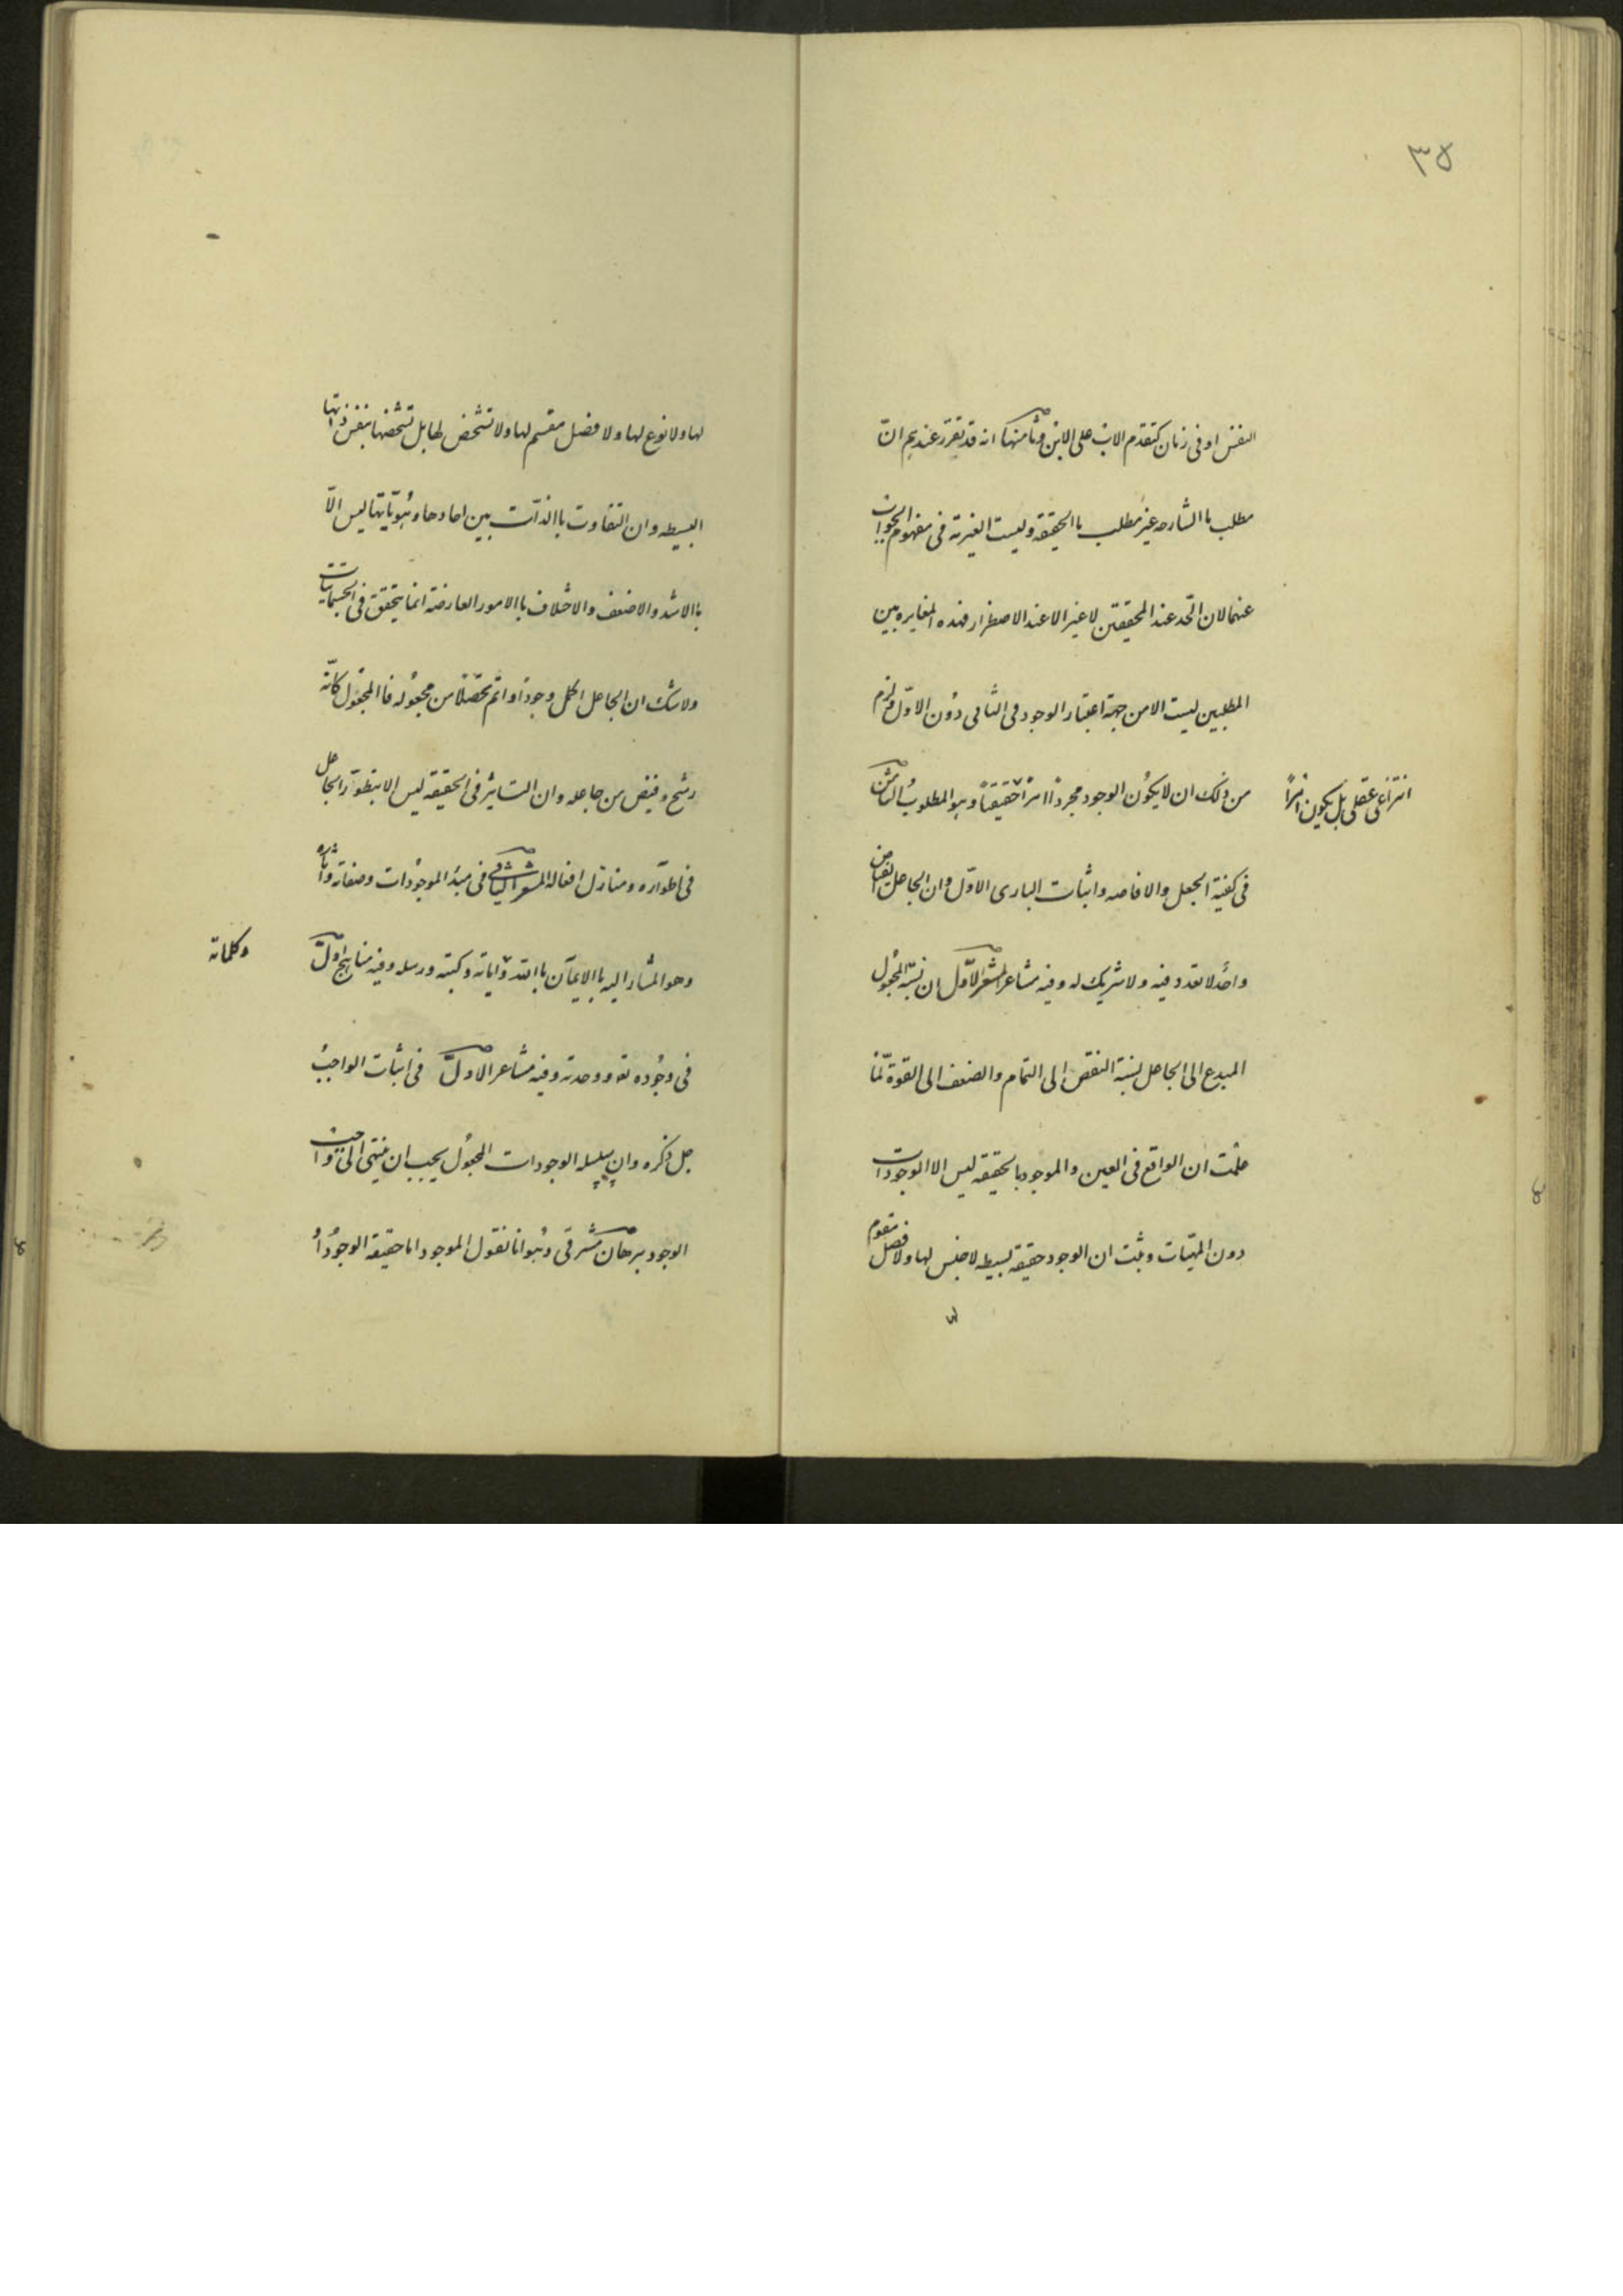 ٣٥
النفس او فى زمان كتقدم الاب على الابن وثامنها انه قد تقرر عندهم انّ
مطلب ما الشارحه غير مطلب ما الحقيقة وليست الغيرية فى مفهوم الجواب
عنهما لان الحد عند المحققين لا غير الا عند الاضطرار فهذه المغايره بين
المطلبين ليست الا من جهة اعتبار الوجود فى الثانى دون الاوّل فلزم
من ذلك ان لا يكون الوجود مجرداً امراً حقيقيّاً وهو المطلوب الثامن
انتزاعى عقلى بل يكون امراً
فى كيفية الجعل والافاضه واثبات البارى الاوّل وان الجاعل الفياض
واحد لا تعدد فيه ولا شريك له وفيه مشاعر المشعر الاوّل ان نسبة المجعول
المبدع الى الجاعل نسبة النقص الى التمام والضعف الى القوة لمّا
علمت ان الواقع فى العين والموجود بالحقيقه ليس الا الوجودات
دون المهيّات وثبت ان الوجود حقيقة بسيطه لا جنس لها ولا فصل مقوم
لها ولا نوع لها ولا فصل مقسم لها ولا تشخص لها بل تشخصها بنفس ذاتها
البسيطه وان التفاوت باالذات بين احادها وهُويّاتها ليس الّا
باالاشد والاضعف والاختلاف باالامور العارضة انما يتحقق فى الجسمانيات
ولا شك ان الجاعل اكمل وجوداً واتم تحصّلاً من مجعوله فاالمجعول كانّه
رشح وفيض من جاعله وان التاثير فى الحقيقه ليس الا بتطوّر الجاعل
فى اطواره ومنازل افعاله المشعر الثانى فى مبدء الموجودات وصفاته واثاره
وهو المشار اليه باالايمان باالله واياته وكتبه ورسله وفيه مناهج الاوّل
وكلماته
فى وجُوده تعه ووحدته وفيه مشاعر الاول فى اثبات الواجب
جل ذكره وان سلسله الوجودات المجعول يجب ان ينتهى الى واجب
الوجود برهان مشرقى وهُو انا نقول الموجود اما حقيقة الوجُود او